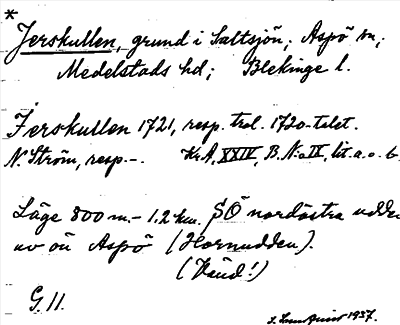 *
Jerskullen, grund i Saltsjön; Aspö sn;
Medelstads hd; Blekinge l.
Jerskullen 1721, resp. trol. 1720-talet.
N. Ström, resp. -. KrA, XXIV, B. N:o IX, lit. a. o. b.
Läge 800 m. - 1,2 km. SÖ nordöstra udden
av ön Aspö (Hornudden).
(Känd!)
G. 11.
1937.